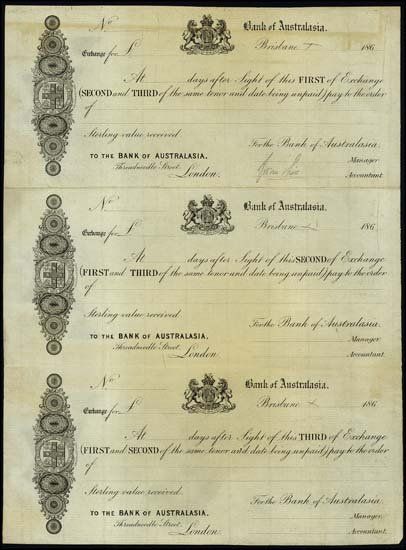 No
Bank of Australasia.
Exchange for £
Brisbane 186
At days after Sight of this FIRST of Exchange
(SECOND and THIRD of the same tenor and date being unpaid) pay to the order
of
Sterling value received.
For the Bank of Australasia.
TO THE BANK OF AUSTRALASIA,
Manager.
Threadneedle Street,
London.
Accountant.
No
Bank of Australasia.
Exchange for £
Brisbane 186
At days after Sight of this SECOND of Exchange
(FIRST and THIRD of the same tenor and date being unpaid) pay to the order
of
Sterling value received.
For the Bank of Australasia.
TO THE BANK OF AUSTRALASIA,
Manager.
Threadneedle Street,
London.
Accountant.
No
Bank of Australasia.
Exchange for £
Brisbane 186
At days after Sight of this THIRD of Exchange
(FIRST and SECOND of the same tenor and date being unpaid) pay to the order
of
Sterling value received.
For the Bank of Australasia.
TO THE BANK OF AUSTRALASIA,
Manager.
Threadneedle Street,
London.
Accountant.